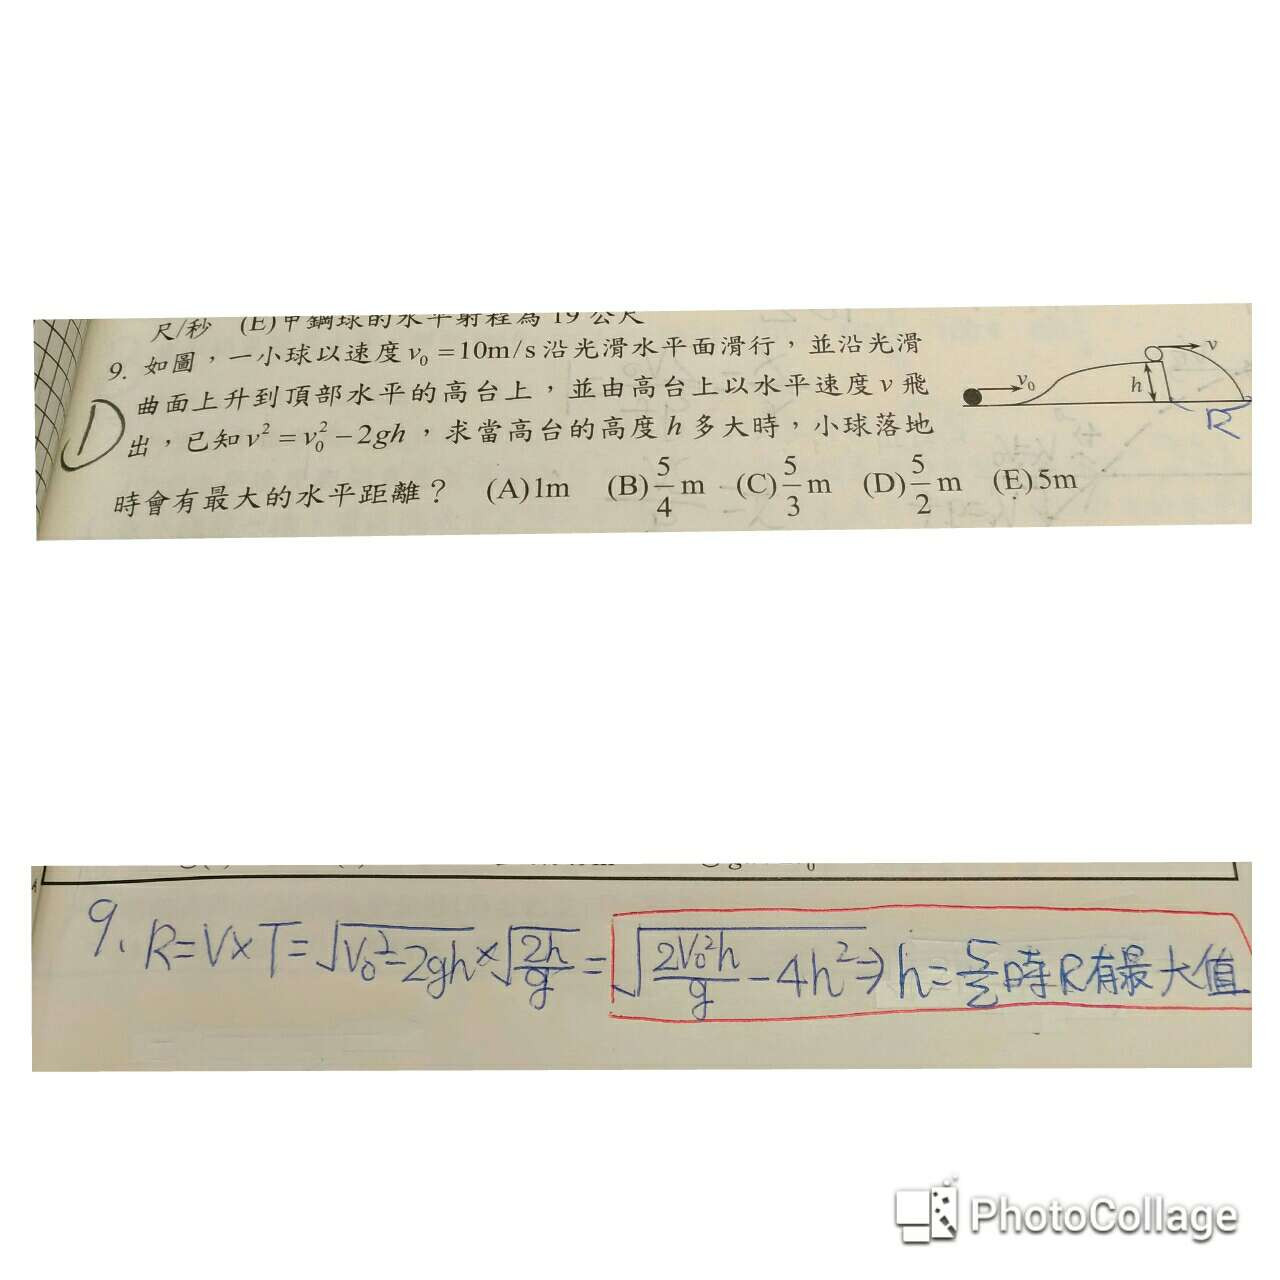 尺/秒 (E)甲鋼球的水平射程為 19 公尺
9. 如圖，一小球以速度 v₀ =10m/s 沿光滑水平面滑行，並沿光滑
曲面上升到頂部水平的高台上，並由高台上以水平速度 v 飛
出，已知 v² = v₀² − 2gh，求當高台的高度 h 多大時，小球落地
時會有最大的水平距離？ (A)1m (B) 5/4 m (C) 5/3 m (D) 5/2 m (E) 5m
D
v₀ h v
R
9. R=V×T=√(V₀²−2gh)×√(2h/g)=√(2V₀²h/g −4h²)⇒h=5/2時R有最大值
PhotoCollage